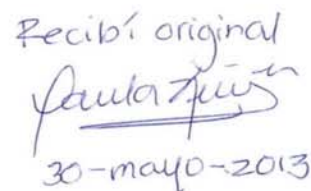 Recibí original
Paula Zúñiga
30-mayo-2013